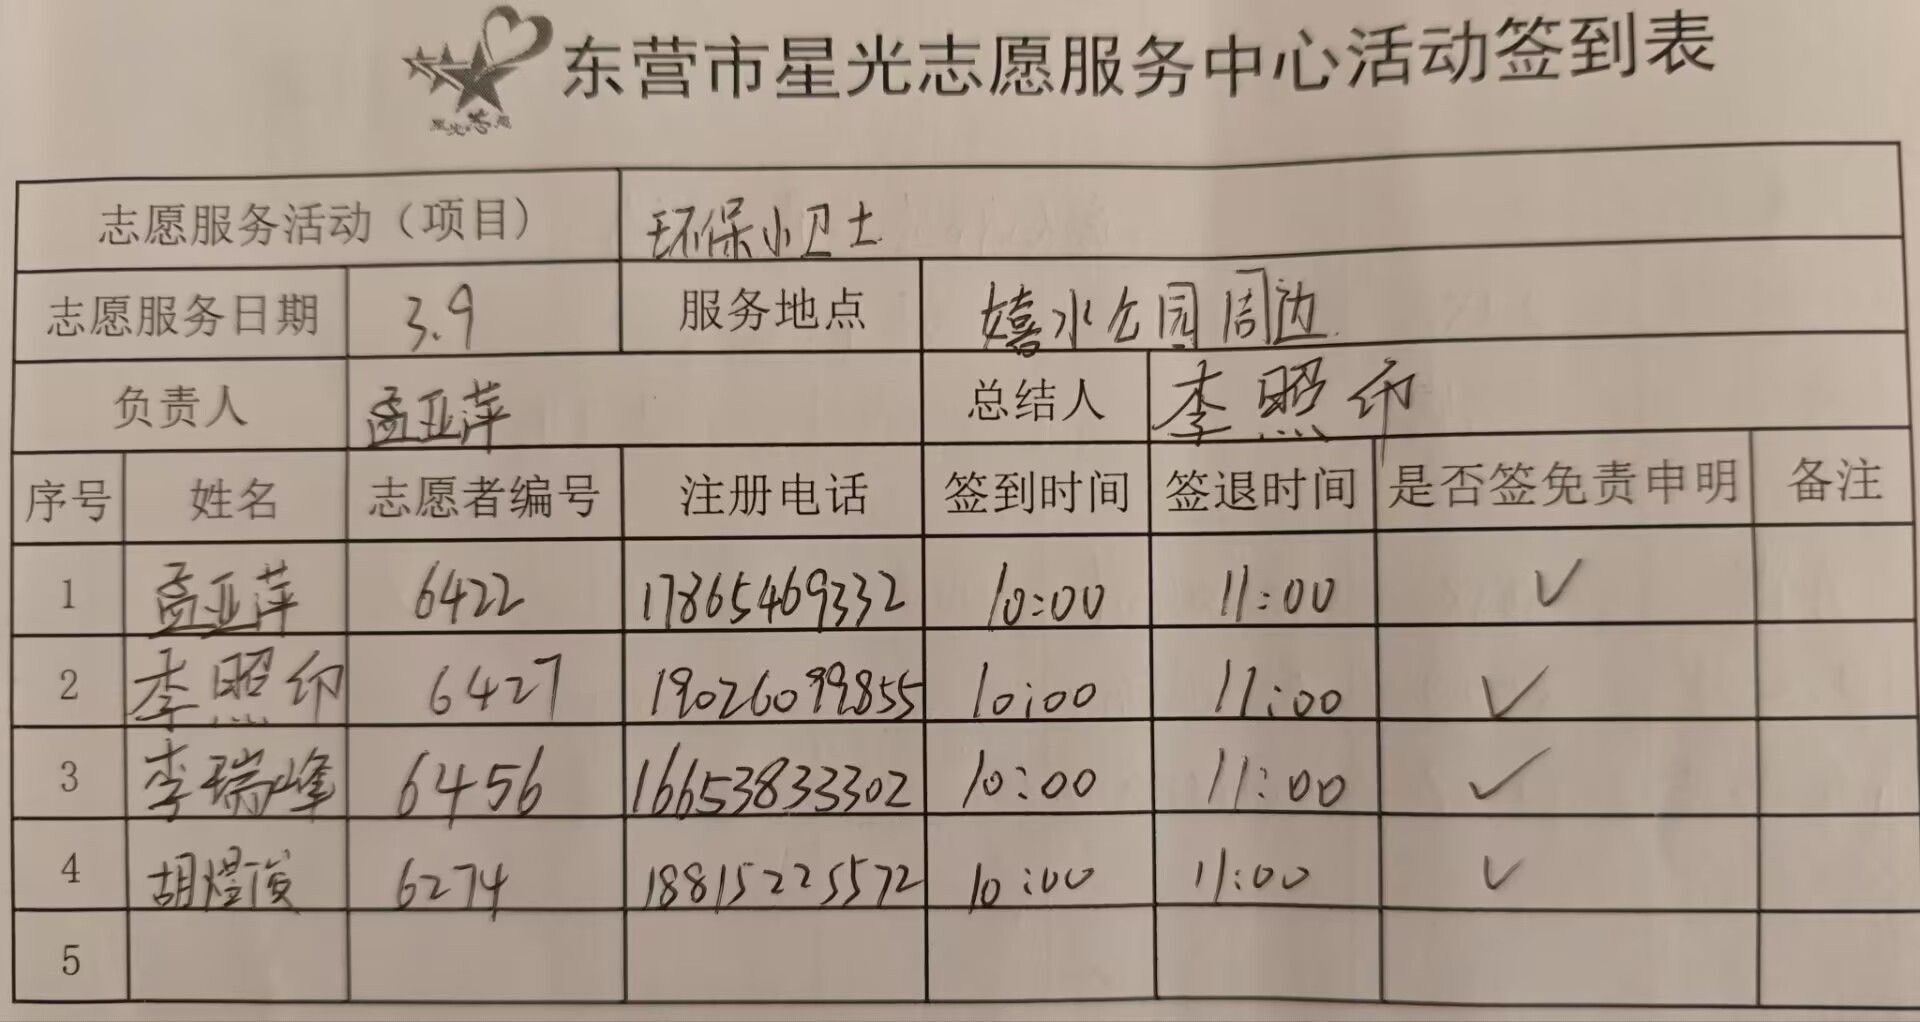 东营市星光志愿服务中心活动签到表
星光志愿
志愿服务活动（项目） 环保小卫士
志愿服务日期 3.9 服务地点 嬉水公园周边
负责人 孟亚萍 总结人 李照印
序号 姓名 志愿者编号 注册电话 签到时间 签退时间 是否签免责申明 备注
1 孟亚萍 6422 17865469332 10:00 11:00 ✓
2 李照印 6427 19026099855 10:00 11:00 ✓
3 李瑞峰 6456 16653833302 10:00 11:00 ✓
4 胡煜俊 6274 18815225572 10:00 11:00 ✓
5